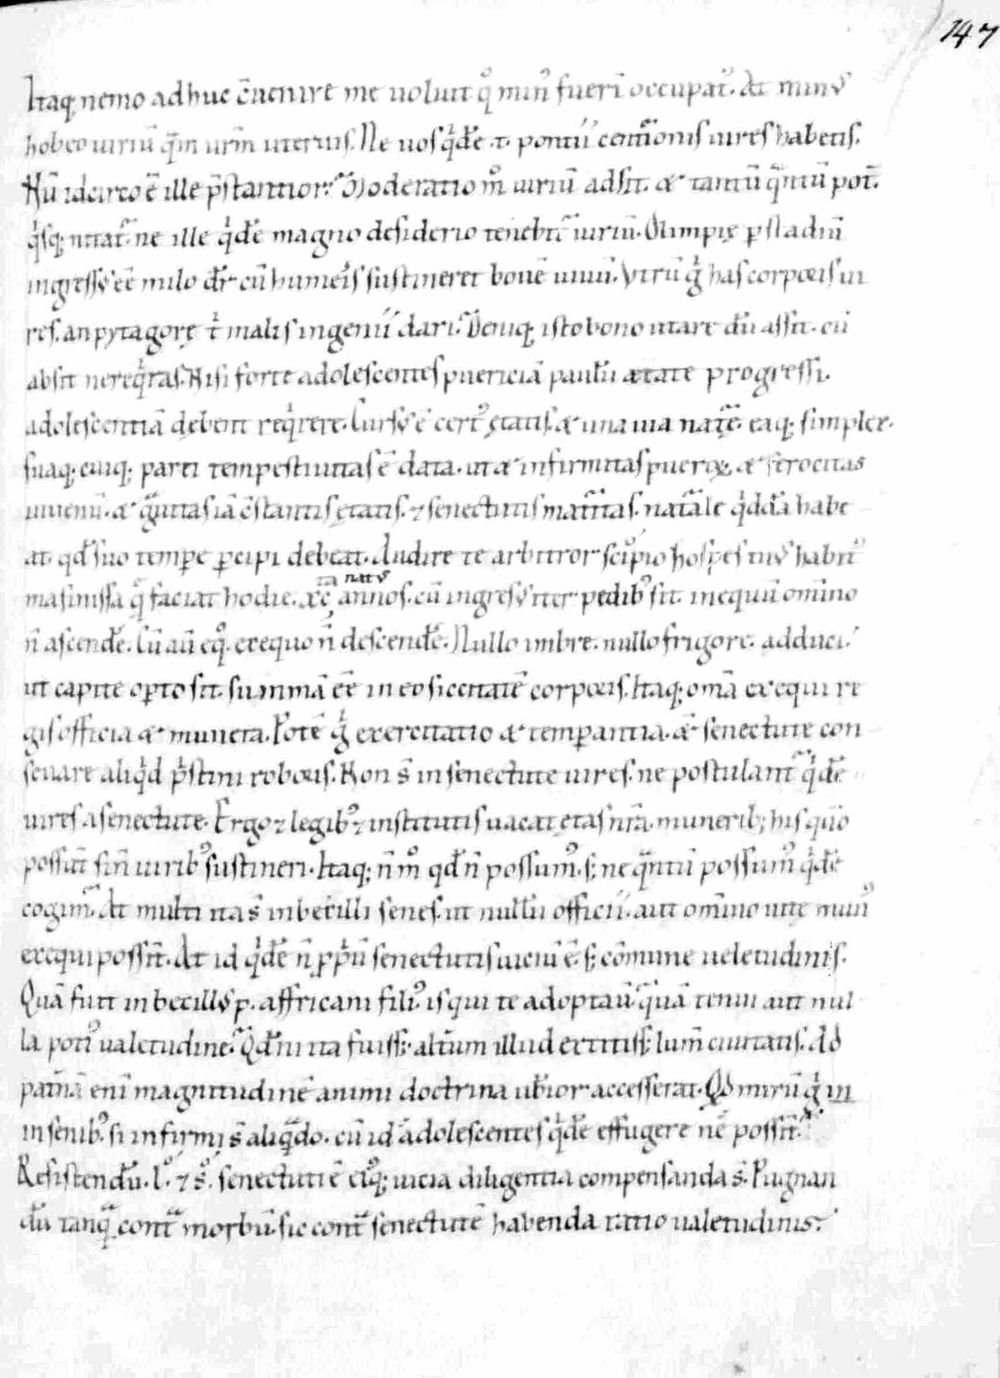 147
Itaq; nemo adhuc c̄uenire me uoluit q͛ min᷒ fueri̅ occupat᷒. At minus
habeo uiriu̅ q̅m ur̅m uteruis. Ne uos q͛de̅ .t. pontii centi̅onis uires habetis.
Nu̅ idcirco e̅ ille p̅stantior? Moderatio m̊ uiriu̅ adsit. & tantu̅ q̅ntu̅ pot̅.
q͛sq; nitat͛. ne ille q͛de̅ magno desiderio teneb͛t͛ uiriu̅. Olimpię p stadiu̅
ingress᷒ e̅e̅ milo dr̅ cu̅ humeris sustineret boue̅ uiuu̅. Vtru̅ g͛ has corporis ui
res. an pytagorę t͛ malis ingenii dari? Deniq; isto bono utare du̅ assit. cu̅
absit ne req͛ras. Nisi forte adolescentes puericia̅ paulu̅ ætate progressi.
adolescentia̅ debent req͛rere. Curs᷒ e̅ cert᷒ ętatis. & una uia nat͛ę. eaq; simplex.
suaq; cuiq; parti tempestiuitas e̅ data. ut & infirmitas pueroꝝ. & ferocitas
iuuenu̅. & g͛uitas ia̅ c̅stantis ętatis. ⁊ senectutis mat͛itas. nat͛ale q͛dda̅ habe
at. qd̅ suo tempe̅ pcipi debeat. Audire te arbitror scipio hospes tuus habit᷒
masinissa q̅ faciat hodie. æc̨ ta nat᷒ annos. cu̅ ingress᷒ iter pedib᷒ sit. in equu̅ om̅ino
n̅ ascende̅. Cu̅ au̅ eq̊. ex equo n̅ descende̅. Nullo imbre. nullo frigore. adduci.
ut capite opto sit. summa̅ e̅e̅ in eo siccitate̅ corporis. Itaq; om̅a exequi re
gis officia & munera. Pote̅ g͛ exercitatio & temperantia. & senectute con
seruare aliq͛d p͛stini roboris. Non s̅ in senectute uires. ne postulant͛ q͛de̅
uires a senectute. Ergo ⁊ legib᷒ ⁊ institutis uacat ętas nr̅a. muneribꝫ his quo̅
possu̅t sin̅ uirib᷒ sustineri. Itaq; n̅ m̊ qd̅ n̅ possum᷒. sꝫ ne q̅ntu̅ possum᷒ q͛de̅
cogim͛. At multi ita s̅ inbecilli senes. ut nullu̅ officii. aut om̅ino uitę mun᷒
exequi possi̅t. At id q͛de̅ n̅ pp͛u̅ senectutis uiciu̅ e̅. sꝫ co̅mune ueletudinis.
Qua̅ fuit inbecillus p. affricani fili᷒ is qui te adoptau̅. qua̅ tenui aut nul
la poti᷒ ualetudine. Qd̅ ni ita fuiss; alt̅um illud extitiss; lum̅ ciuitatis. Ad
pat̅na̅ eni̅ magnitudine̅ animi doctrina ub̅ior accesserat. Qd miru̅ g͛ in
in senib᷒. si infirmi s̅ aliq̅do. cu̅ id adolescentes q͛de̅ effugere ne̅ possi̅t.
Resistendu̅. l᷒. ⁊ s᷒. senectuti e̅ ei᷒q; uicia diligentia compensanda s̅. Pugnan
du̅ tanq̅ cont͛ morbu̅. sic cont͛ senectute̅ habenda ratio ualetudinis.